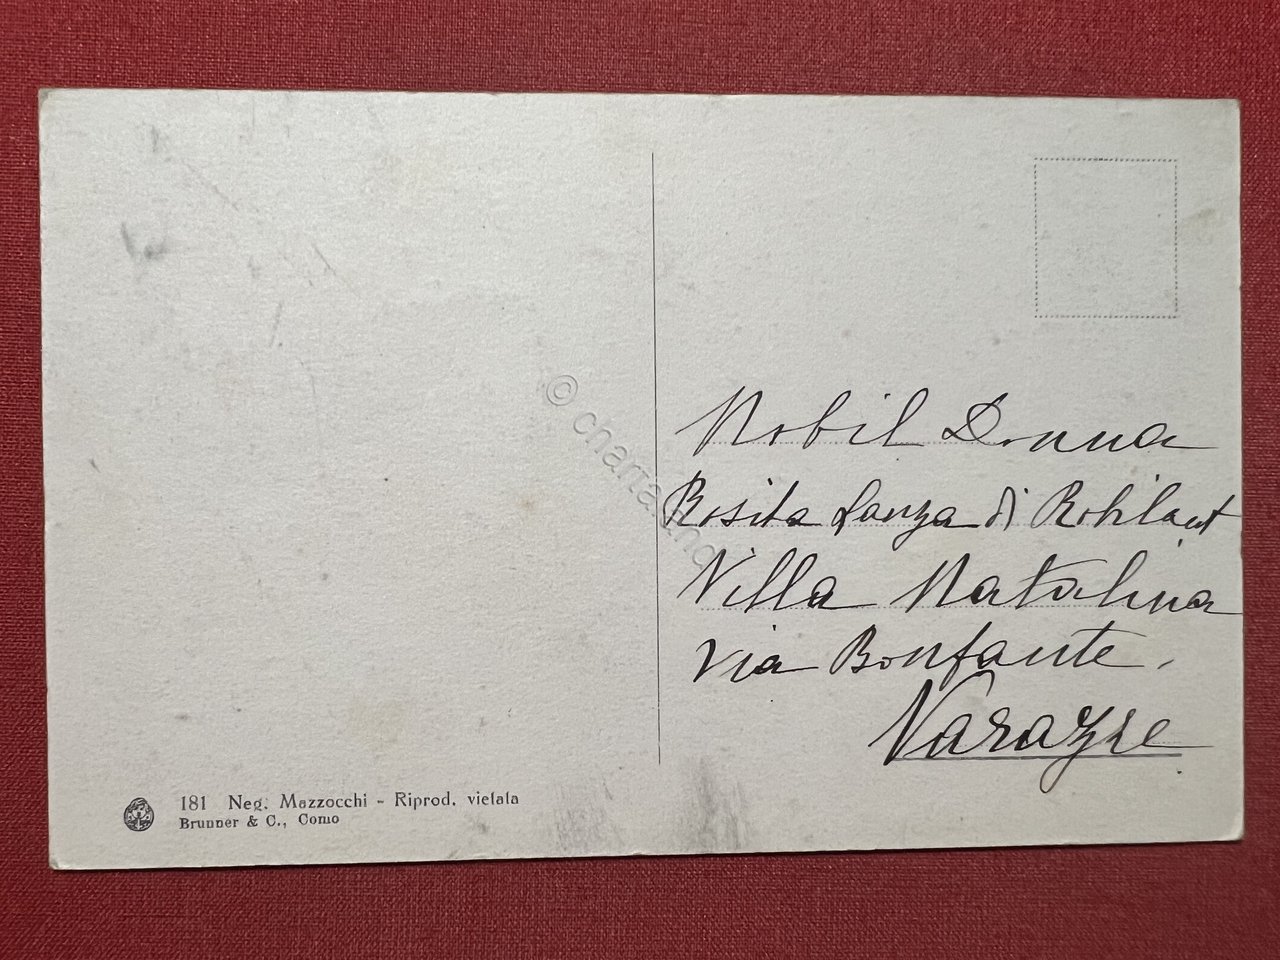 Nobil Donna
Rosita Lanza di Robilant
Villa Natalina
Via Bonfante.
Varazze
181 Neg. Mazzocchi - Riprod. vietata
Brunner & C., Como
© charta